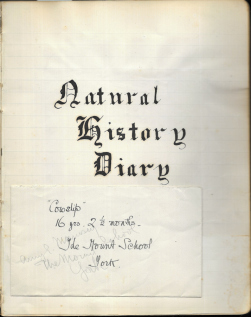 Natural
History
Diary
"Cowslip"
16 yrs. 2 ½ months.
The Mount School
York